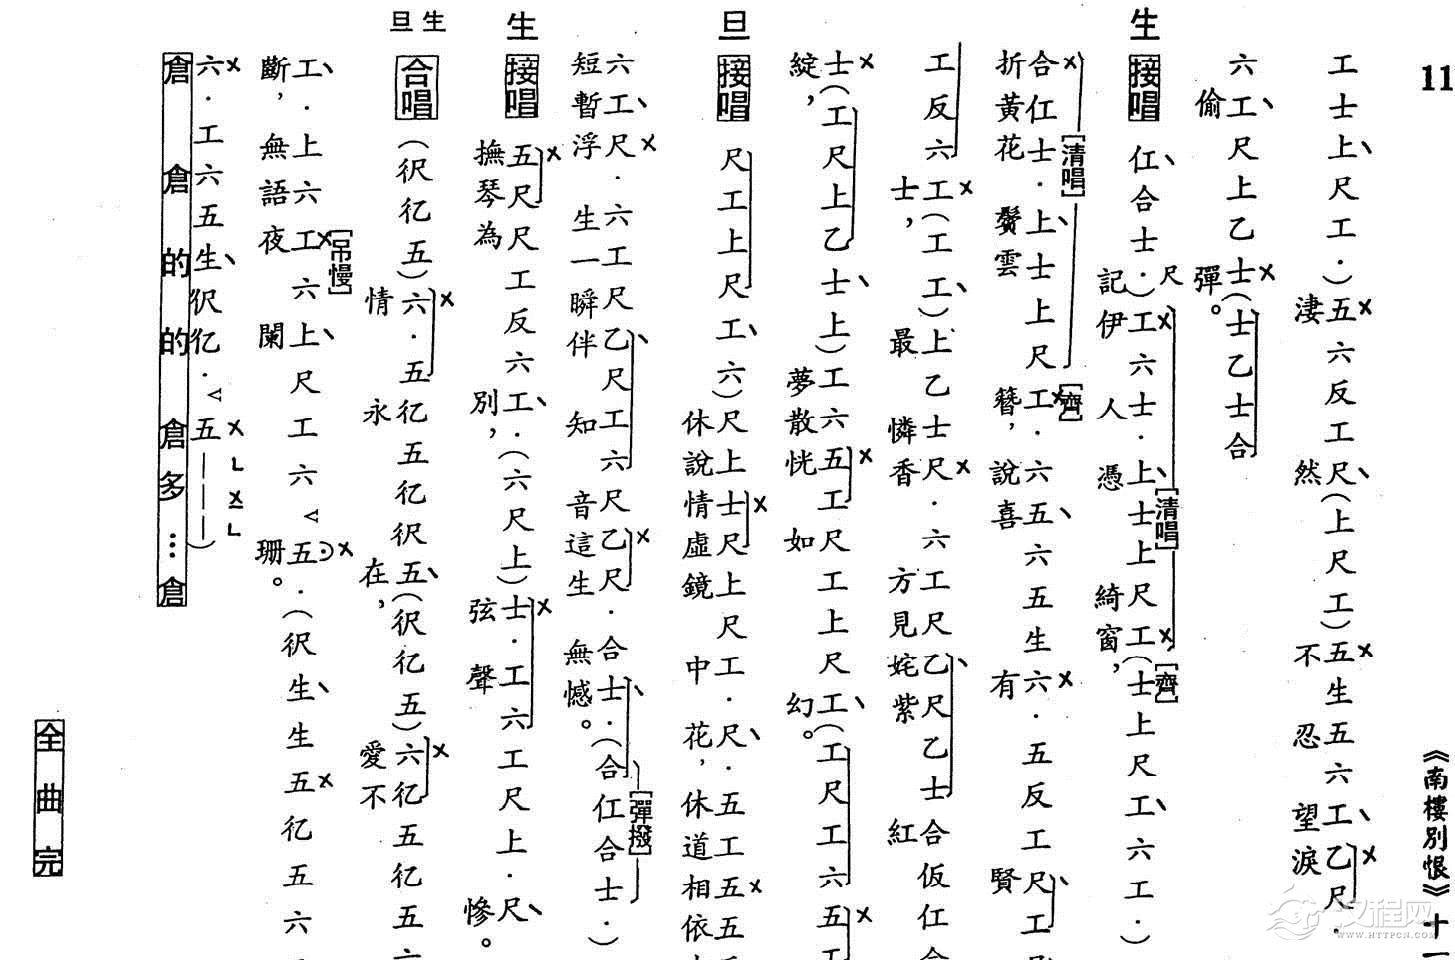 11 《南樓別恨》十
工士上、尺工·）五六反工尺、（上尺工）五生五六工、乙尺·
淒然不忍望淚
六工、尺上乙士（士乙士合
偷彈。
生 接唱 仜、合士·尺）工六士·上、士上尺工（士上尺工、六工·）
[清唱] [齊]
記伊人憑綺窗，
[清唱] [齊]
合仜士·上、士上尺工·六五、六五生六·五反工尺、工
折黃花鬢雲簪，說喜有賢
工反六工（工工、）上乙士尺·六工尺乙、尺乙士合仮仜合
士，最憐香方見姹紫紅
士（工尺上乙士、上）工六五工尺工上尺工、（工尺工六五工
綻，夢散恍如幻。
旦 接唱 尺工上尺工、六）尺上士尺上尺工·尺、·五工五五
休說情虛鏡中花，休道相依
六工、尺·六工尺乙、尺工六尺乙尺·合士、·（合仜合士·）
[彈撥]
短暫浮生一瞬伴知音這生無憾。
生 接唱 五尺尺工反六工、·（六尺上）士·工六工尺上·尺、
撫琴為別，弦聲慘。
生旦 合唱 （伬亿五）六·五亿五亿伬五、（伬亿五）六亿五亿五六
情永在，愛不
工、·上六工六上、尺工六五·（伬生、生五亿五六
[吊慢]
斷，無語夜闌珊。
六·工六五生、伬亿·五———）
倉倉的的倉多…倉
全曲完
汉程网
WWW.HTTPCN.COM